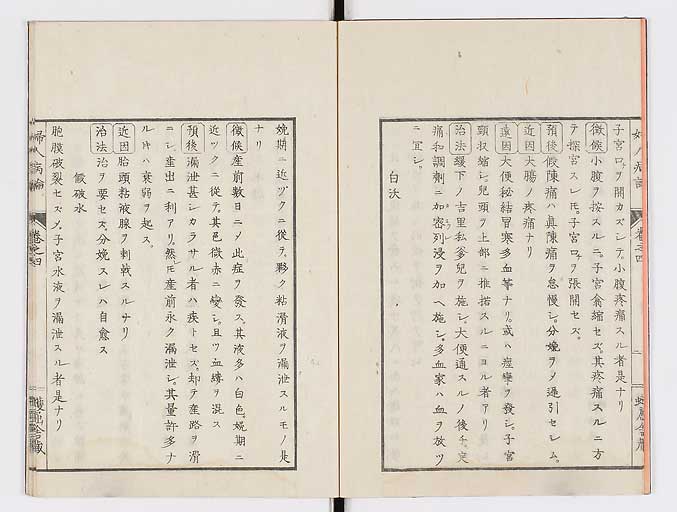 子宮口ヲ開カズシテ小腹疼痛スル者是ナリ
徴候小腹ヲ按スルニ。子宮翕縮セズ。其疼痛スルニ方
テ探宮スレ𪜈。子宮口ヲ張開セズ。
預後假陳痛ハ眞陳痛ヲ怠慢シ。分娩ヲ〆遷引セレム。
近因大腸ノ疼痛ナリ
遠因大便秘結冒寒多血等ナリ。或ハ痙攣ヲ發シ。子宮
頸収縮シ。兒頭ヲ上部ニ推揩スルニヨル者アリ
治法緩下ノ吉里私爹兒ヲ施シ。大便通スルノ後チ。
痛和調劑ニ加密列浸ヲ加ヘ施シ。多血家ハ血ヲ放ツ
ニ宜シ。
白沃
娩期ニ近ヅクニ從テ。夥ク粘滑液ヲ漏泄スルモノ是
ナリ
徴候産前數日ニ〆此症ヲ發ス。其液多ハ白色。娩期ニ
近ツクニ從テ。其色微赤ニ變シ。且ツ血縷ヲ混ス
預後漏泄甚シカラサル者ハ疾トセズ。却テ産路ヲ滑
ニシ産出ニ利アリ。然𪜈産前永ク漏泄シ。其量許多ナ
ル𪜈ハ衰弱ヲ起ス。
近因胎頭粘液腺ヲ刺戟スルナリ
治法治ヲ要セズ。分娩スレハ自愈ス
假破水
胞膜破裂セズ〆。子宮水液ヲ漏泄スル者是ナリ
婦人病論 卷之四